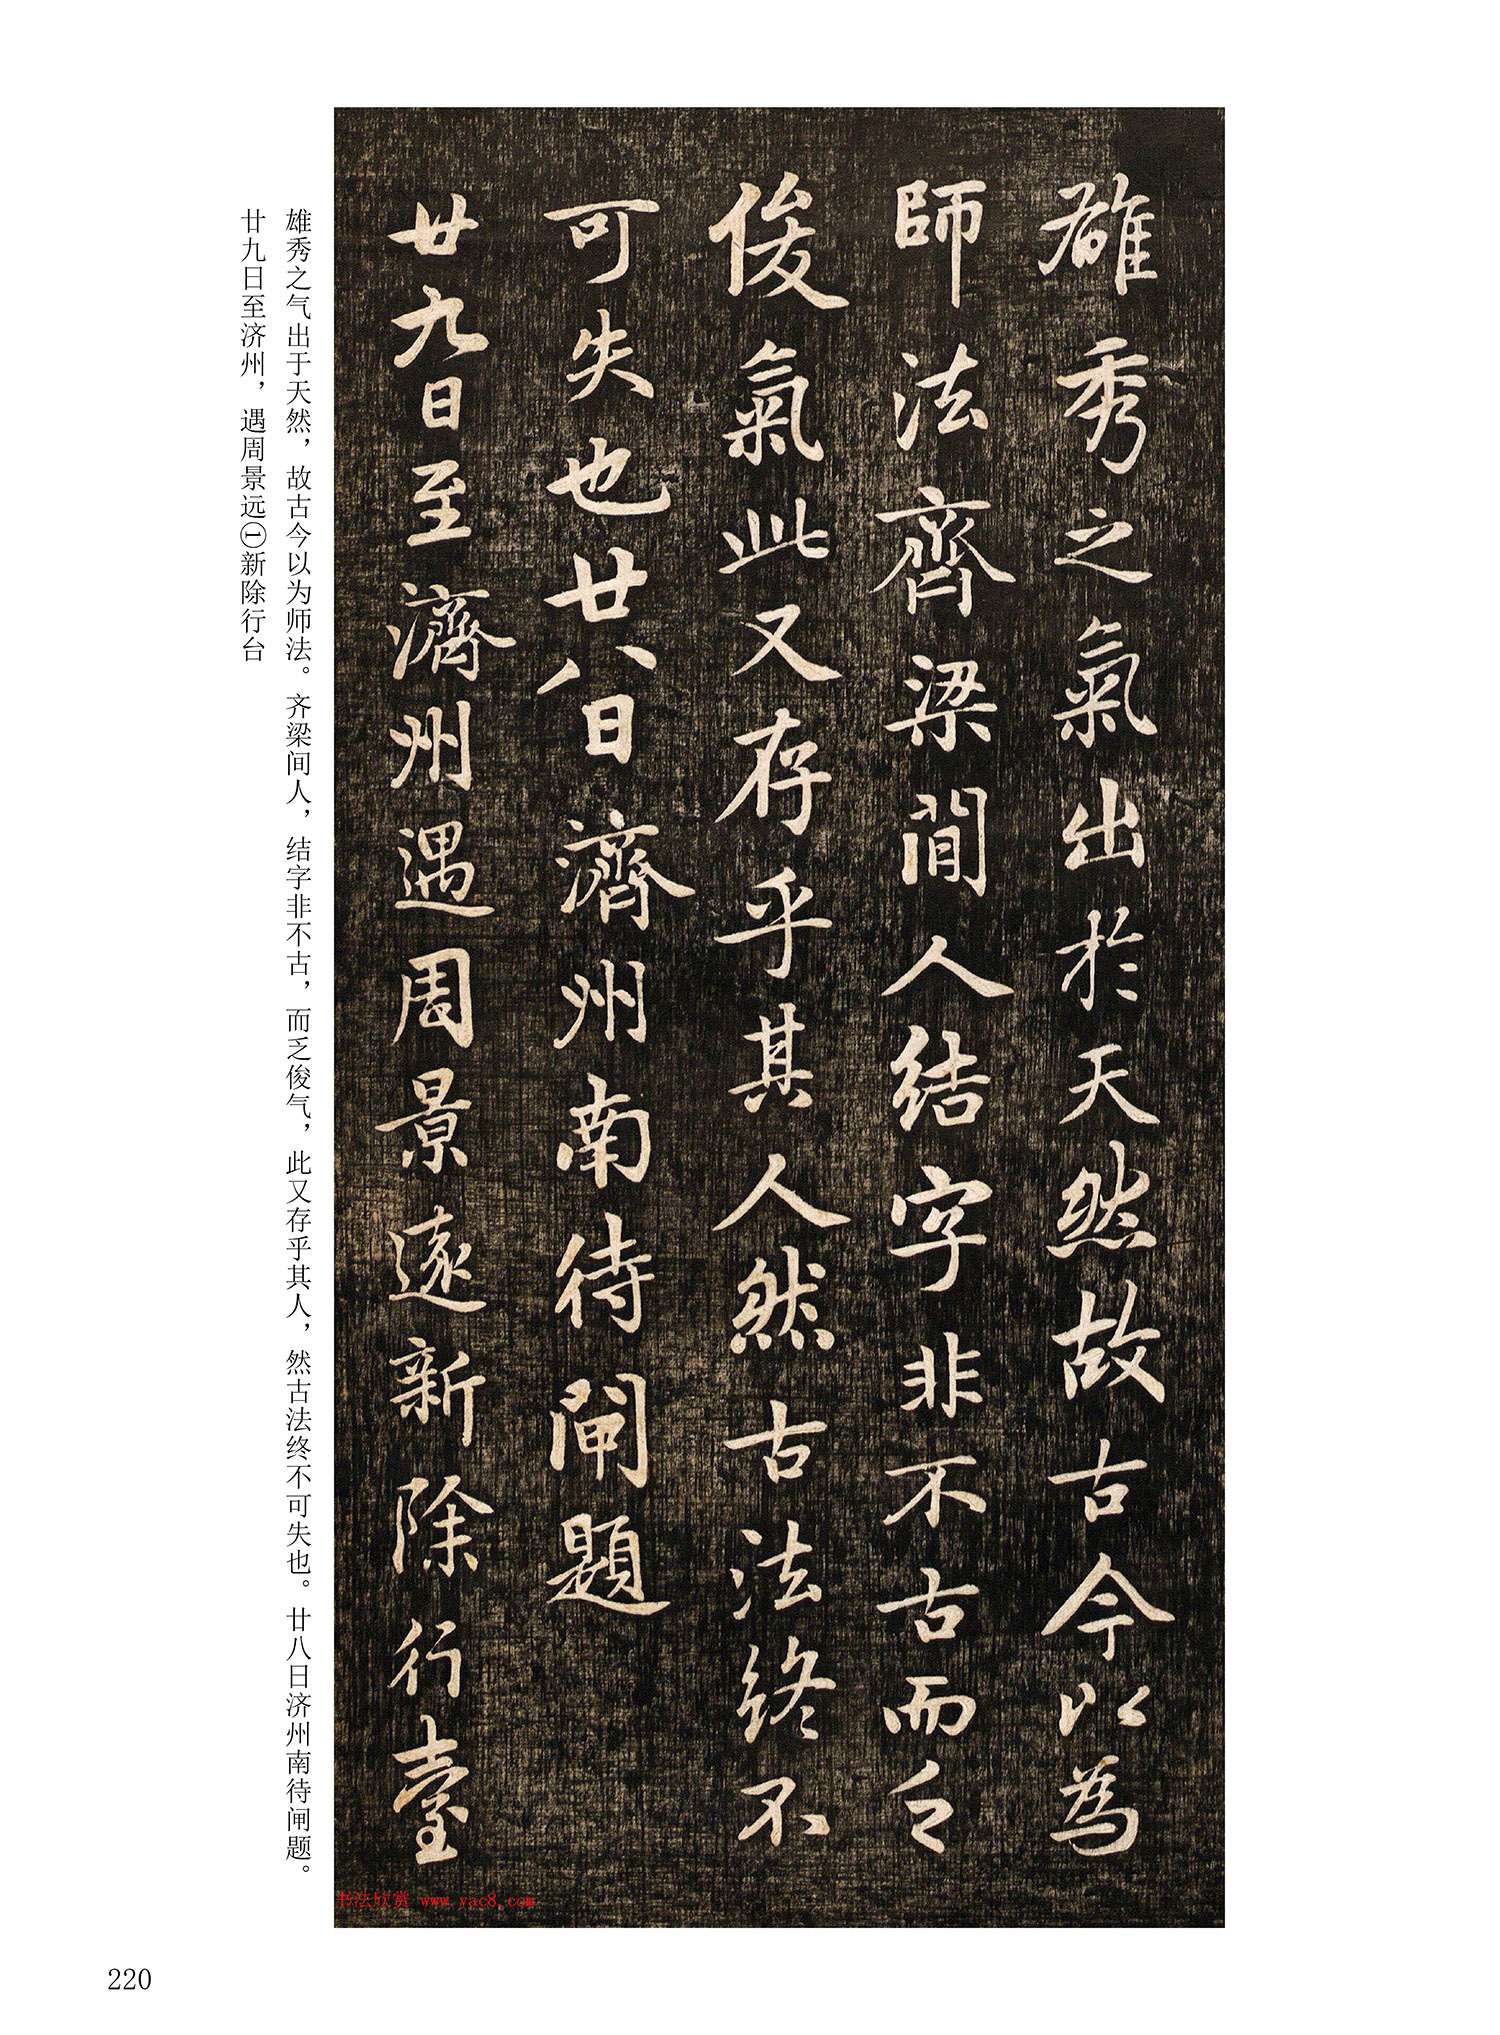 雄秀之氣出於天然故古今以為
師法齊梁間人結字非不古而乏
俊氣此又存乎其人然古法終不
可失也廿八日濟州南待閘題
廿九日至濟州遇周景遠新除行臺
雄秀之气出于天然，故古今以为师法。齐梁间人，结字非不古，而乏俊气，此又存乎其人，然古法终不可失也。廿八日济州南待闸题。
廿九日至济州，遇周景远㊀新除行台
书法欣赏 www.yac8.com
220